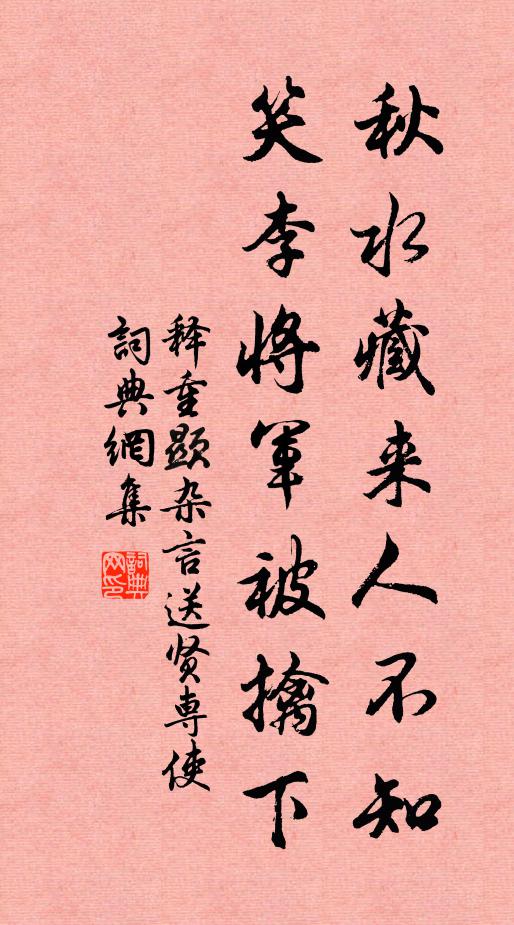 秋水藏来人不知
笑李将军被擒下
释重顯杂言送贤専使
詞典網集
詞典网印